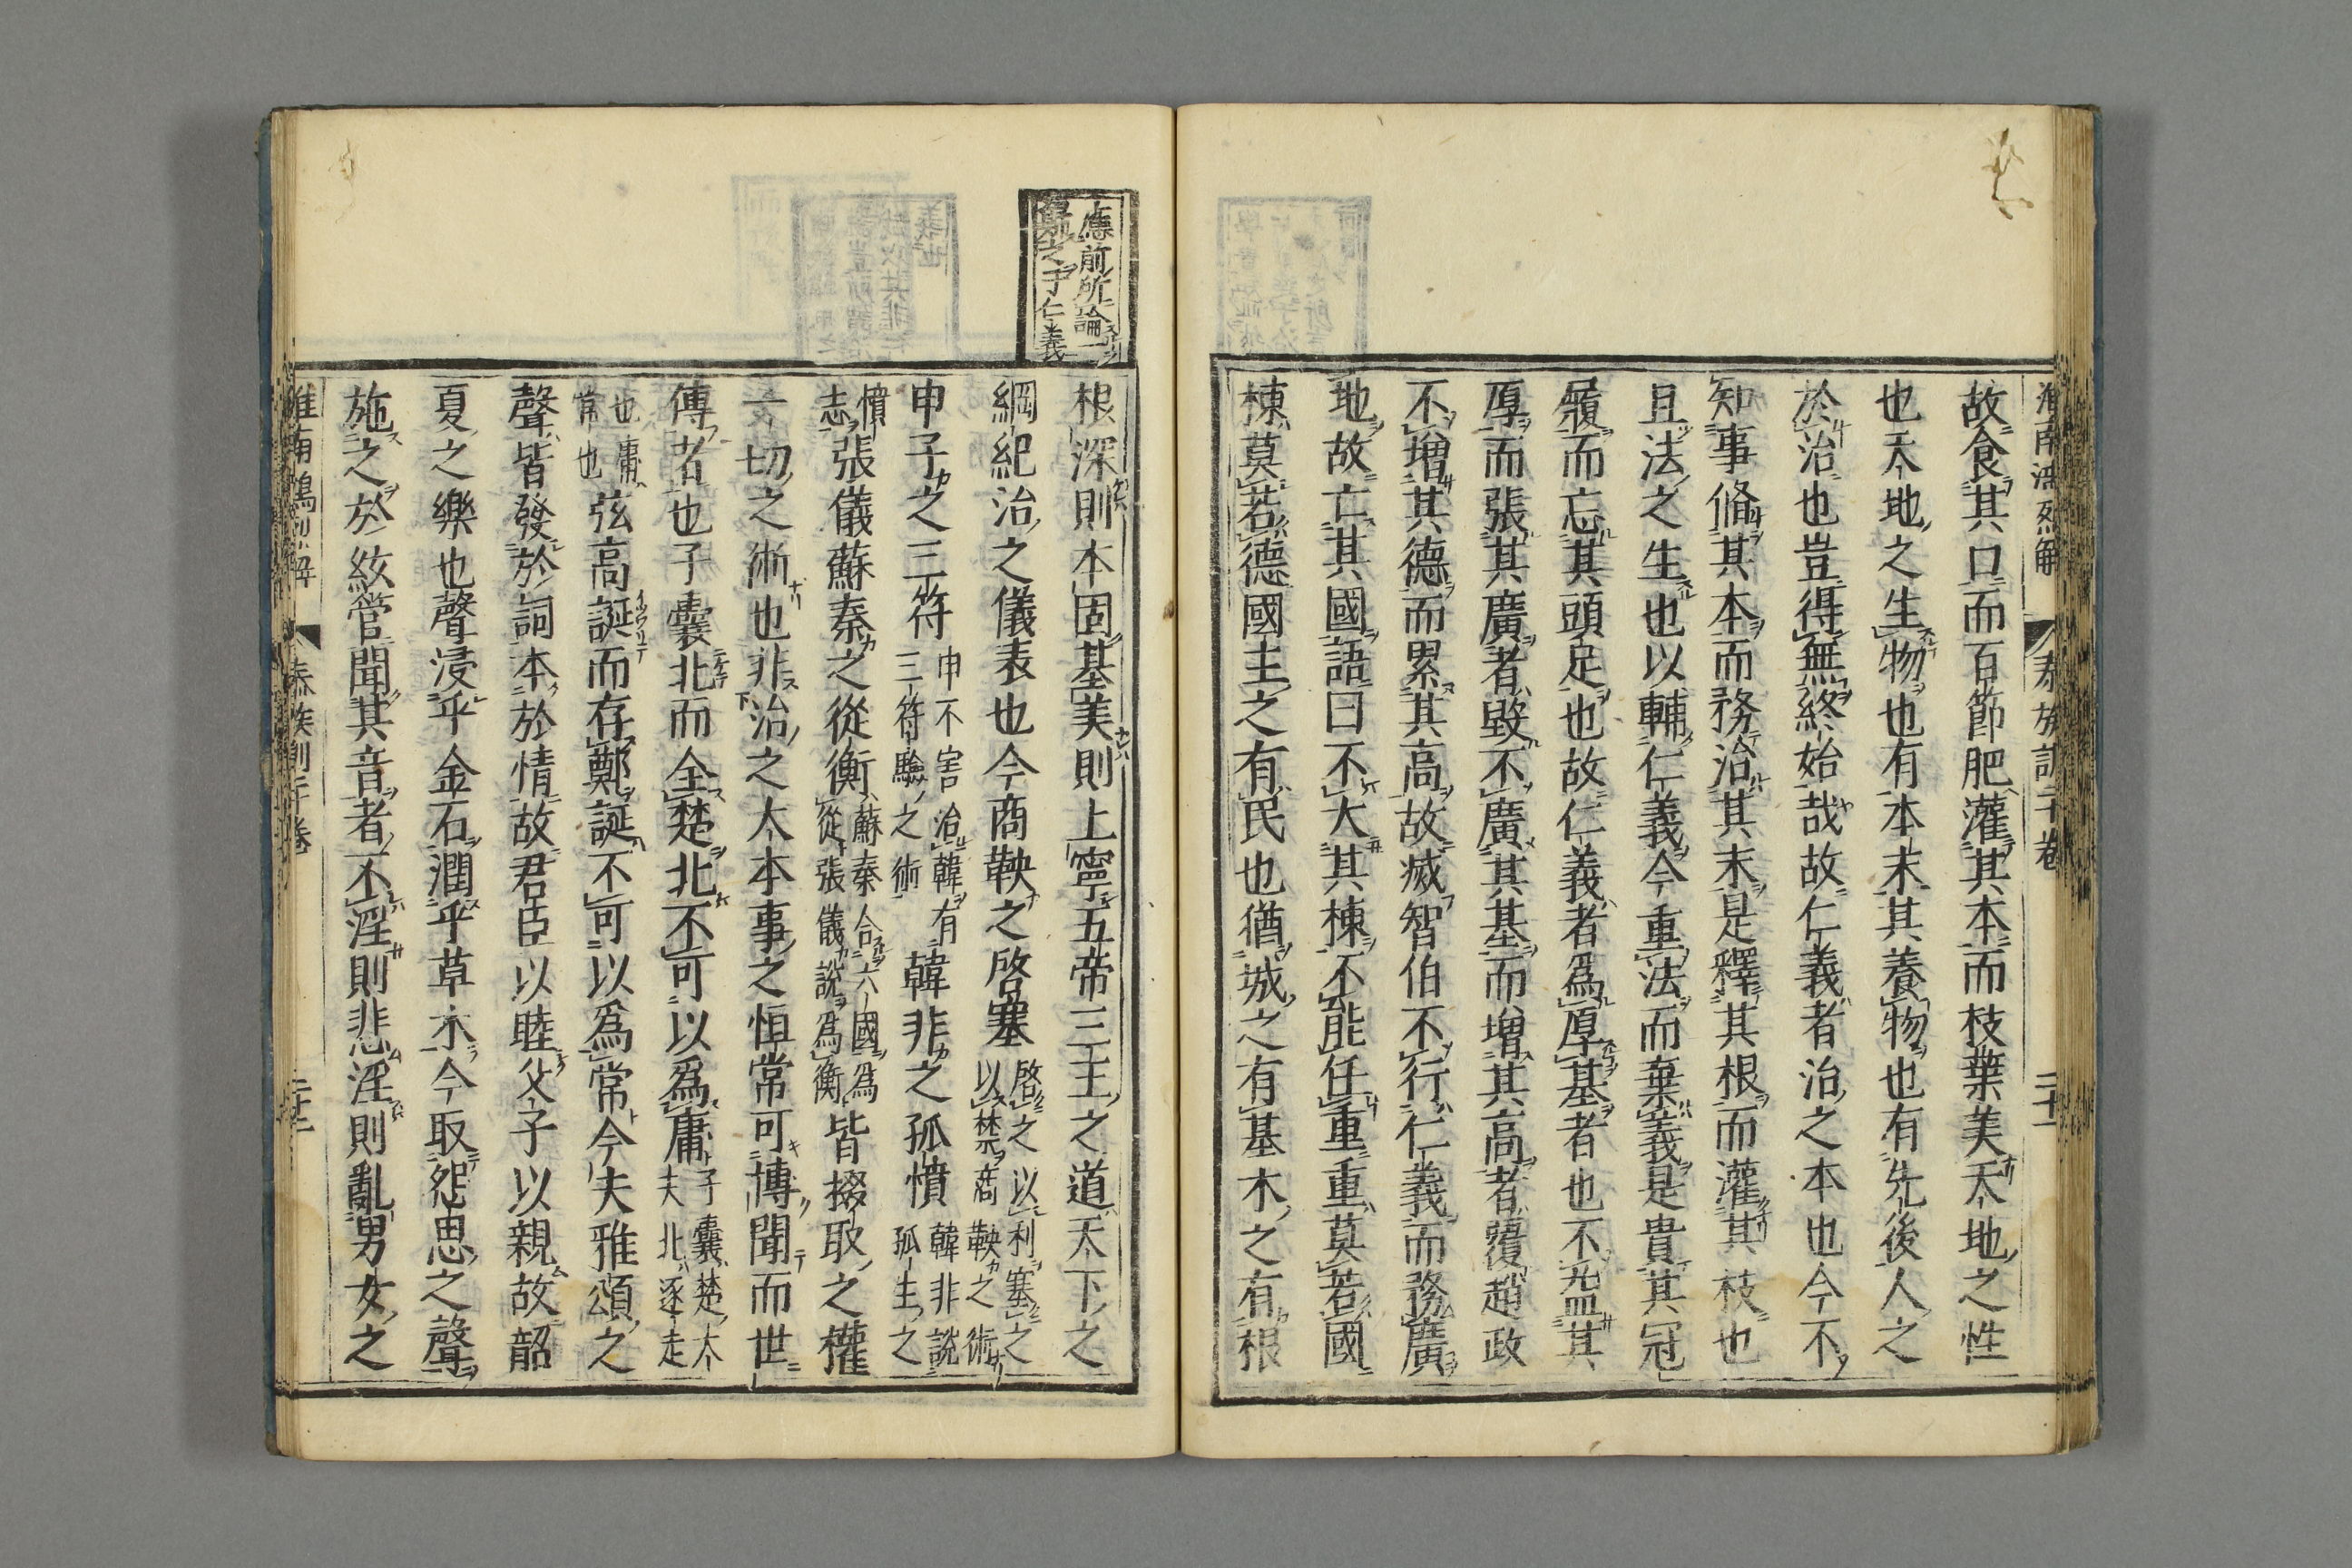 淮南鴻烈解 泰族訓二十卷 二十一
故食其口而百節肥灌其本而枝葉美天地之性
也天地之生物也有本末其養物也有先後人之
於治也豈得無終始哉故仁義者治之本也今不
知事脩其本而務治其末是釋其根而灌其枝也
且法之生也以輔仁義今重法而棄義是貴其冠
履而忘其頭足也故仁義者爲厚基者也不益其
厚而張其廣者毀不廣其基而增其高者覆趙政
不增其德而累其高故滅智伯不行仁義而務廣
地故亡其國語曰不大其棟不能任重重莫若國
棟莫若德國主之有民也猶城之有基木之有根
應前所論一
歸之于仁義
根深則本固基美則上寧五帝三王之道天下之
綱紀治之儀表也今商鞅之啓塞啓之以利塞之以禁商鞅之術
申子之三符申不害治韓有三符驗之術韓非之孤憤韓非說孤生之
憤志張儀蘇秦之從衡蘇秦合六國爲從張儀說爲衡皆掇取之權
一切之術也非治之大本事之恒常可博聞而世
傳者也子囊北而全楚北不可以爲庸子囊楚大夫北逐走
也庸常也弦高誕而存鄭誕不可以爲常今夫雅頌之
聲皆發於詞本於情故君臣以睦父子以親故韶
夏之樂也聲浸乎金石潤乎草木今取怨思之聲
施之於絃管聞其音者不淫則悲淫則亂男女之
淮南鴻烈解 泰族訓二十卷